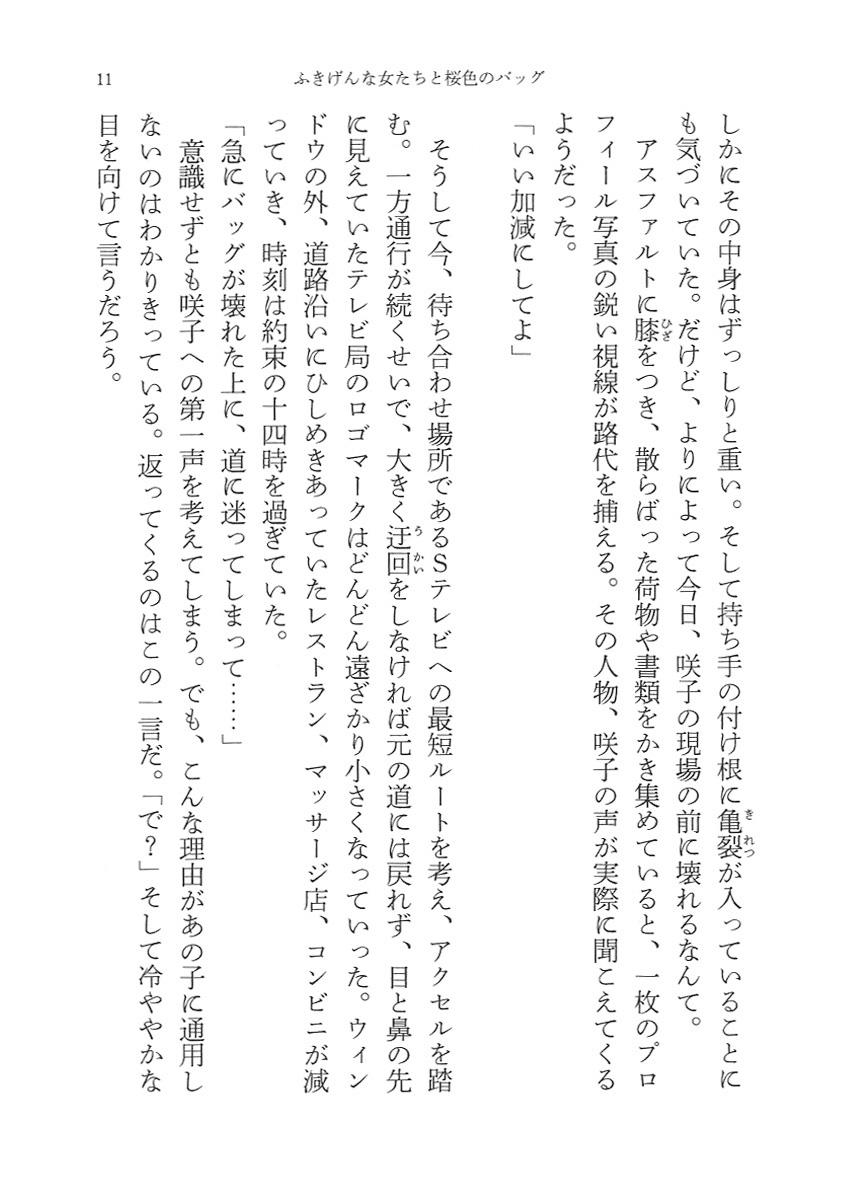 11
ふきげんな女たちと桜色のバッグ
しかにその中身はずっしりと重い。そして持ち手の付け根に亀裂が入っていることに
も気づいていた。だけど、よりによって今日、咲子の現場の前に壊れるなんて。
アスファルトに膝をつき、散らばった荷物や書類をかき集めていると、一枚のプロ
フィール写真の鋭い視線が路代を捕える。その人物、咲子の声が実際に聞こえてくる
ようだった。
「いい加減にしてよ」
そうして今、待ち合わせ場所であるSテレビへの最短ルートを考え、アクセルを踏
む。一方通行が続くせいで、大きく迂回をしなければ元の道には戻れず、目と鼻の先
に見えていたテレビ局のロゴマークはどんどん遠ざかり小さくなっていった。ウィン
ドウの外、道路沿いにひしめきあっていたレストラン、マッサージ店、コンビニが減
っていき、時刻は約束の十四時を過ぎていた。
「急にバッグが壊れた上に、道に迷ってしまって……」
意識せずとも咲子への第一声を考えてしまう。でも、こんな理由があの子に通用し
ないのはわかりきっている。返ってくるのはこの一言だ。「で？」そして冷ややかな
目を向けて言うだろう。